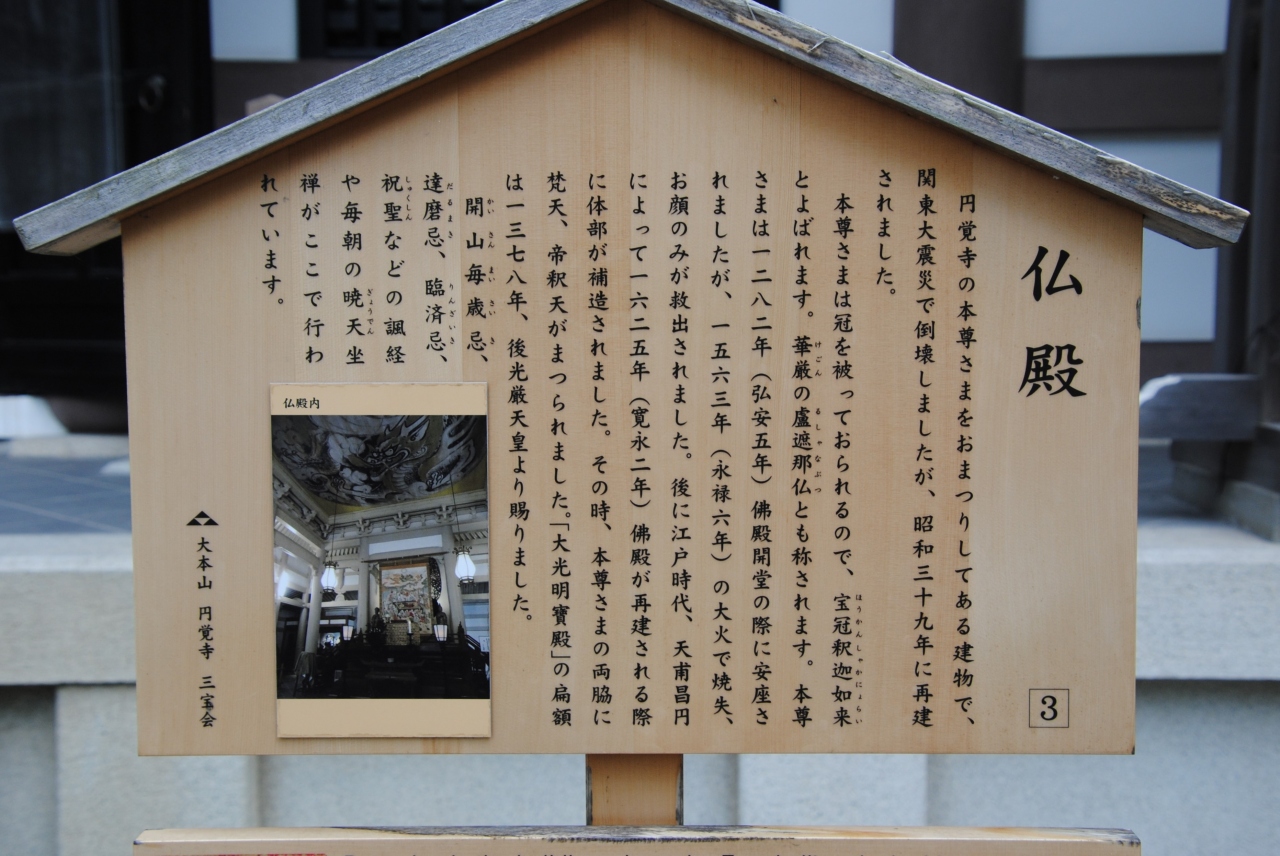 仏殿
3
円覚寺の本尊さまをおまつりしてある建物で、
関東大震災で倒壊しましたが、昭和三十九年に再建
されました。
本尊さまは冠を被っておられるので、宝冠釈迦如来
ほうかんしゃかにょらい
とよばれます。華厳の盧遮那仏とも称されます。本尊
けごん
るしゃなぶつ
さまは一二八二年(弘安五年)佛殿開堂の際に安座さ
れましたが、一五六三年(永禄六年)の大火で焼失、
お顔のみが救出されました。後に江戸時代、天甫昌円
によって一六二五年(寛永二年)佛殿が再建される際
に体部が補造されました。その時、本尊さまの両脇に
梵天、帝釈天がまつられました。「大光明寶殿」の扁額
は一三七八年、後光厳天皇より賜りました。
開山毎歳忌、
かいさんまいさいき
達磨忌、臨済忌、
だるまき
りんざいき
祝聖などの諷経
しゅくしん
や毎朝の暁天坐
ぎょうてん
禅がここで行わ
れています。
仏殿内
大本山 円覚寺 三宝会